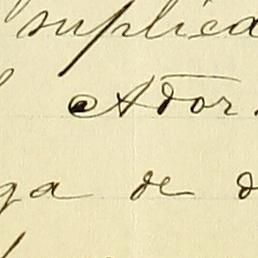 suplica
Ador.
ga de d